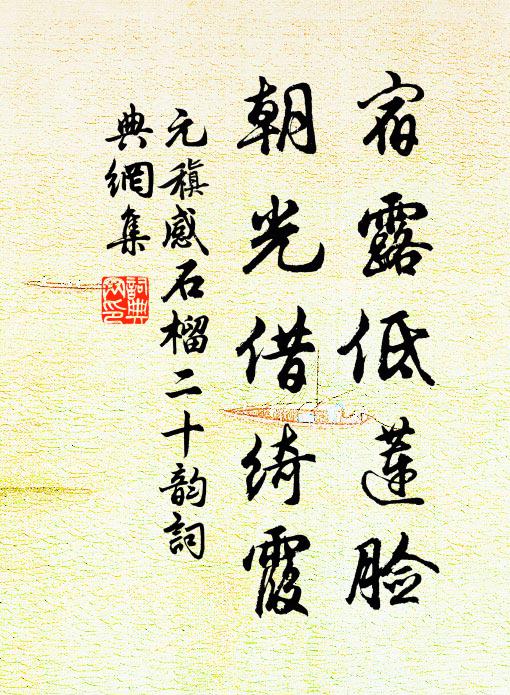 宿露低蓮脸
朝光借绮霞
元稹感石榴二十韵詞
典網集
詞典